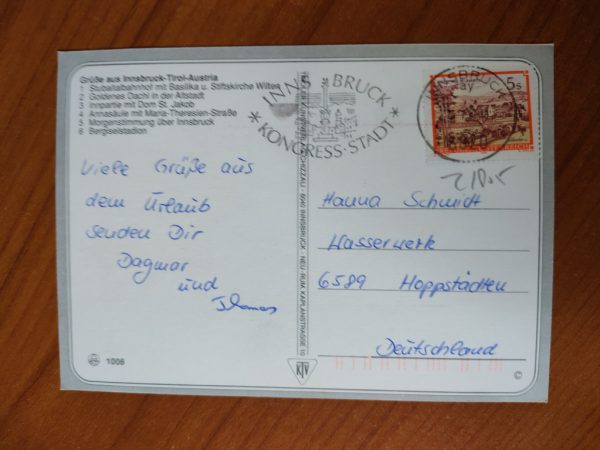 Grüße aus Innsbruck-Tirol-Austria
1 Stubaitalbahnhof mit Basilika u. Stiftskirche Wilten
2 Goldenes Dachl in der Altstadt
3 Innpartie mit Dom St. Jakob
4 Annasäule mit Maria-Theresien-Straße
5 Morgenstimmung über Innsbruck
6 Bergiselstadion
Viele Grüße aus
dem Urlaub
senden Dir
Dagmar
und
Thomas
1006
INNSBRUCK
* KONGRESS-STADT *
INNSBRUCK
5s
Hanna Schmidt
Wasserwerk
6589 Hoppstädten
Deutschland
6040 INNSBRUCK - NEU-RUM, KAPLANSTRASSE 10
KTV
©